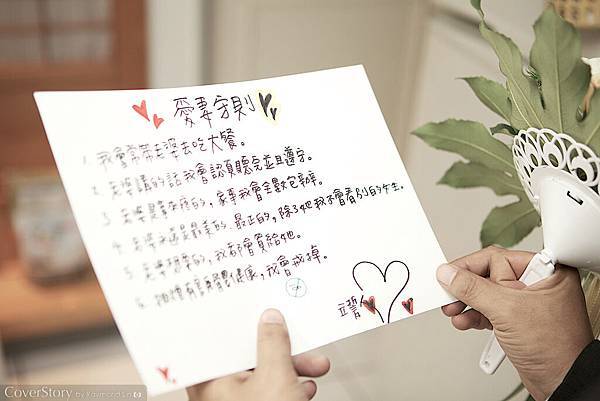 愛妻守則
1. 我會常帶老婆去吃大餐。
2. 老婆講的話我會認真聽完並且遵守。
3. 老婆是享福的，家事我會全數包辦。
4. 老婆永遠是最美的、最正的，除了她我不會看別的女生。
5. 老婆想要的，我都會買給她。
6. 抽煙有害身體健康，我會戒掉。
立誓人
CoverStory by Raymond Lin